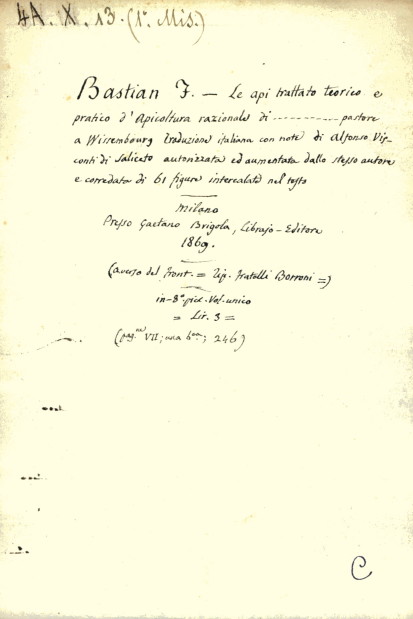 4A. X. 13. (1ª. Mis.)
Bastian F. — Le api trattato teorico e
pratico d'Apicoltura razionale di ---------- pastore
a Wissembourg traduzione italiana con note di Alfonso Vis-
conti di Saliceto autorizzata ed aumentata dallo stesso autore
e corredata di 61 figure intercalate nel testo
Milano
Presso Gaetano Brigola, Librajo-Editore
1869.
(averso del front. = Tip. Fratelli Borroni =)
in-8° picc. Vol. unico
= Lir. 3 =
(pag.ne VII; una b.ca; 246)
C